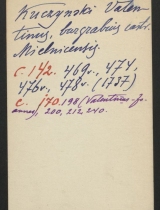 Kuczynski Valen-
tinus, burgrabius castr.
Mielnicensis.
c. 142. 469v., 474,
476v., 478v. (1737)
c. 170. 198 (Valentinus-Jo-
annes), 200, 212, 240.